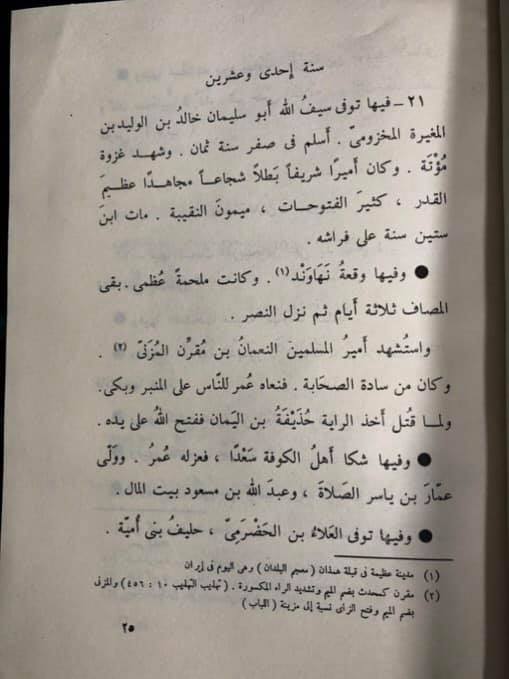 سنة إحدى وعشرين
٢١ - فيها توفى سيفُ الله أبو سليمان خالدُ بن الوليدبن
المغيرة المخزومىّ . أسلم فى صفر سنة ثمان . وشهد غزوة
مُؤْتَة . وكان أميرًا شريفاً بَطلاً شجاعاً مجاهدًا عظيمَ
القدر ، كثيرَ الفتوحات ، ميمونَ النقيبة . مات ابنَ
ستين سنة على فراشه .
● وفيها وقعةُ نَهَاوَنْد (١) . وكانت ملحمةً عُظمى . بقى
المصاف ثلاثةَ أيام ثم نزل النصر .
واستُشهد أميرُ المسلمينَ النعمانُ بن مُقَرِّن المُزَنىّ (٢) .
وكان من سادة الصحَابة . فنعاه عُمر للنّاس على المنبر وبكى .
ولما قُتل أخذ الراية حُذَيْفَةُ بن اليَمان ففتح اللهُ على يده .
● وفيها شكا أهلُ الكوفة سَعْدًا ، فعزله عمرُ . وولّى
عمّارَ بن ياسر الصَلاةَ ، وعبدَ الله بن مسعود بيت المال .
● وفيها توفى العَلاءُ بن الحَضْرَمِىّ ، حليفُ بنى أُميّة .
(١) مدينة عظيمة فى قبلة همذان ( معجم البلدان ) وهى اليوم فى إيران
(٢) مقرن كمحدث بضم الميم وتشديد الراء المكسورة . ( تهذيب التهذيب ١٠ : ٤٥٦ ) والمزنى
بضم الميم وفتح الزاى نسبة إلى مزينة ( اللباب )
٢٥